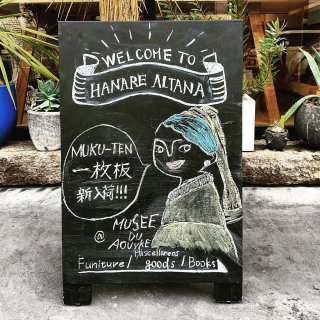 WELCOME TO
HANARE ALTANA
MUKU-TEN
一枚板
新入荷!!!
@ MUSEE
DU
AOUVRE
Miscellaneos
Funiture/ goods / Books